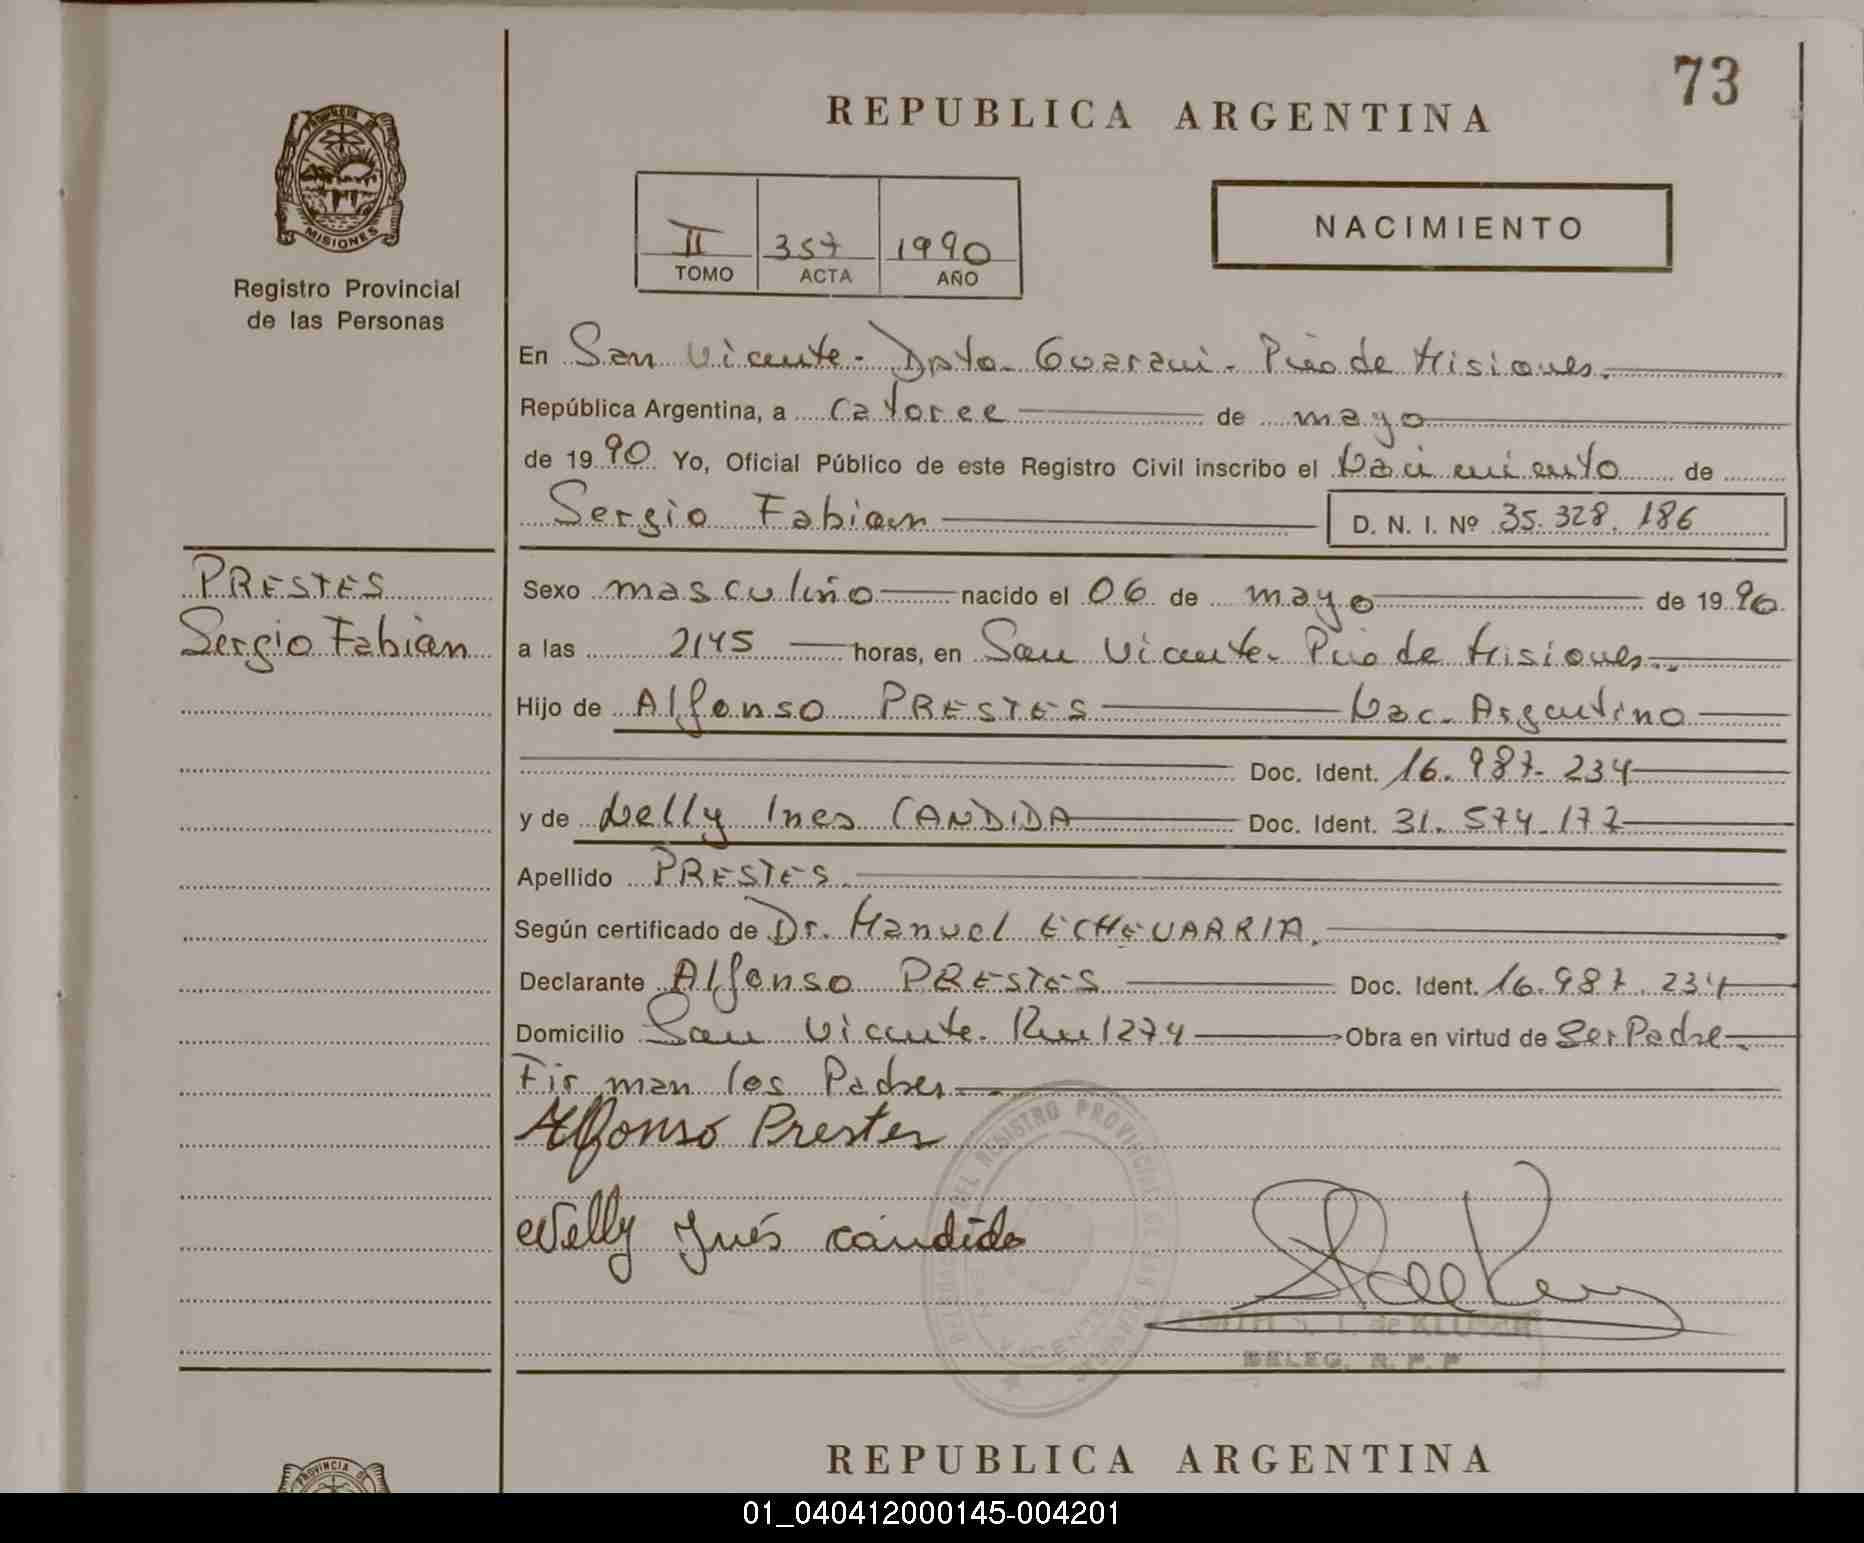 73
REPUBLICA ARGENTINA
PROVINCIA DE
MISIONES
Registro Provincial
de las Personas
II 357 1990
TOMO ACTA AÑO
NACIMIENTO
En San Vicente - Dpto. Guarani - Pcia de Misiones.
República Argentina, a catorce de mayo
de 1990 Yo, Oficial Público de este Registro Civil inscribo el Nacimiento de
Sergio Fabian D. N. I. Nº 35.328.186
PRESTES
Sergio Fabian
Sexo masculino nacido el 06 de mayo de 1990
a las 2145 horas, en San Vicente. Pcia de Misiones.
Hijo de Alfonso PRESTES Nac. Argentino
Doc. Ident. 16.987.234
y de Nelly Ines CANDIDA Doc. Ident. 31.574.177
Apellido PRESTES
Según certificado de Dr. Manuel ECHEVARRIA.
Declarante Alfonso PRESTES Doc. Ident. 16.987.234
Domicilio San Vicente. Km 1274 Obra en virtud de Ser Padre
Firman los Padres
Alfonso Prestes
Nelly Inés cándida
DEL REGISTRO PROVINCIAL DE LAS PERSONAS
VICENTE
de KLUSER
DELEG. R. P. P.
REPUBLICA ARGENTINA
PROVINCIA DE
01_040412000145-004201